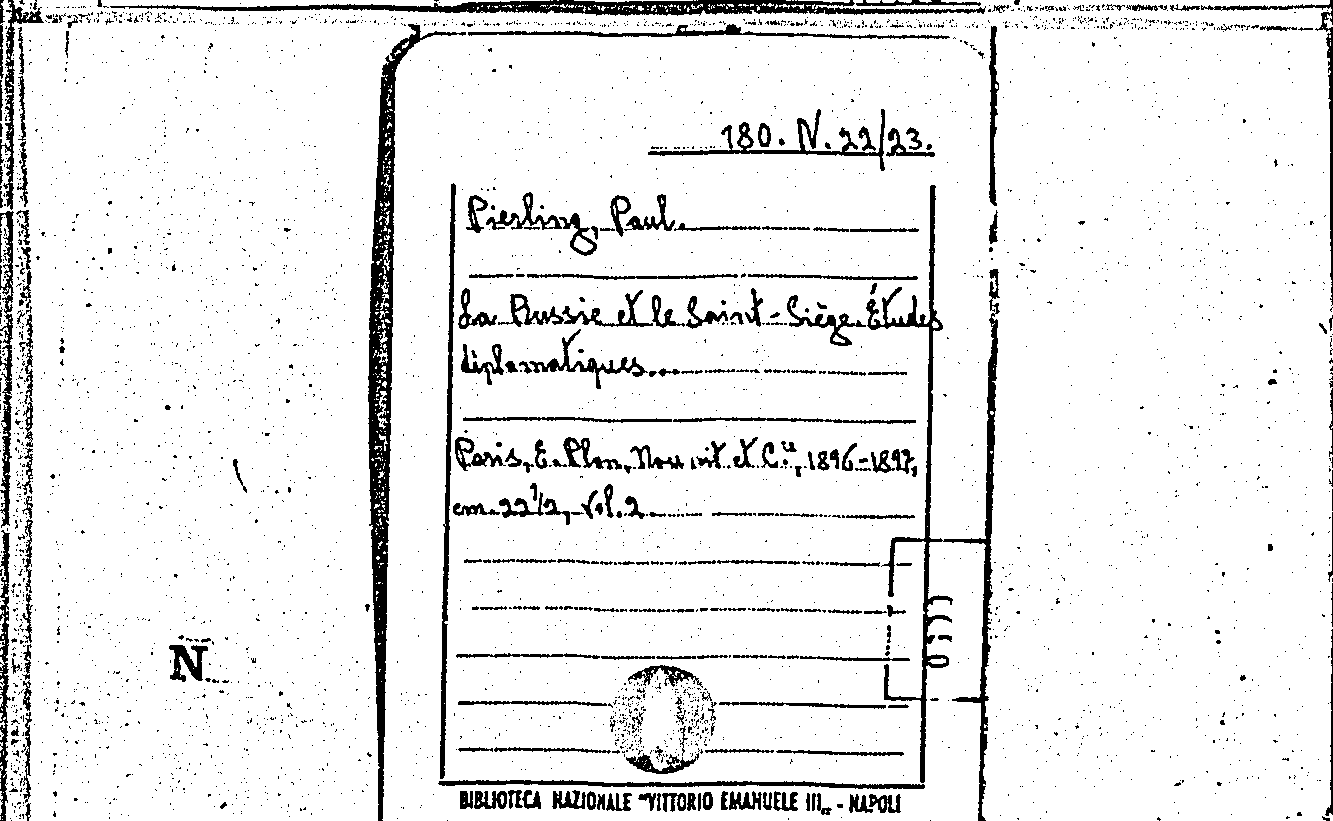 180. N. 22/23.
Pierling, Paul.
La Russie et le Saint-Siège. Études
diplomatiques...
Paris, E. Plon, Nourrit et C.ie, 1896-1897,
cm. 22 1/2, vol. 2
N
BIBLIOTECA NAZIONALE "VITTORIO EMANUELE III„ - NAPOLI